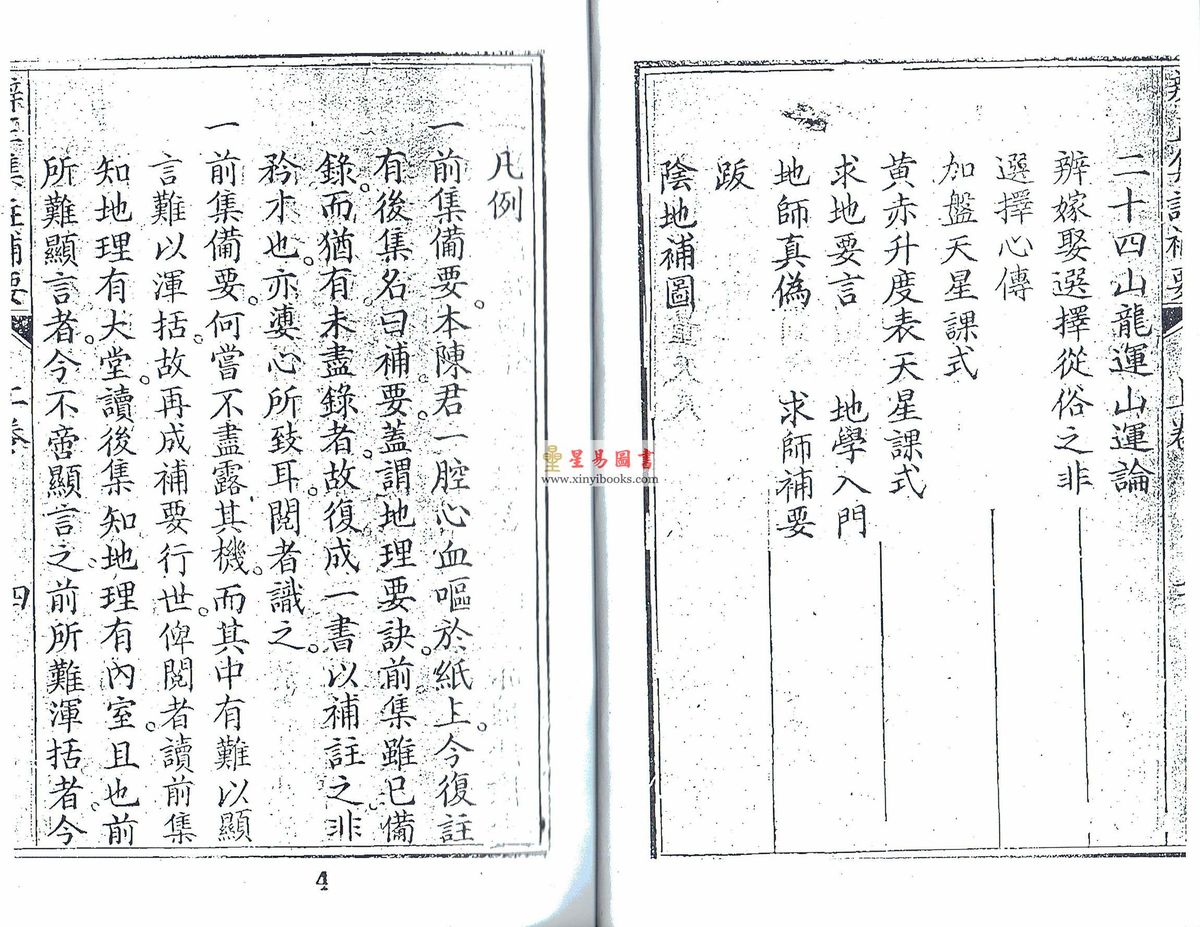 二十四山龍運山運論
辨嫁娶選擇從俗之非
選擇心傳
加盤天星課式
黃赤升度表天星課式
求地要言 地學入門
地師真偽 求師補要
跋
陰地補圖
凡例
一前集備要。本陳君一腔心血嘔於紙上。今復註
有後集名曰補要。蓋謂地理要訣。前集雖已備
錄。而猶有未盡錄者。故復成一書以補註之。非
矜才也。亦婆心所致耳。閱者識之。
一前集備要。何嘗不盡露其機。而其中有難以顯
言難以渾括。故再成補要行世。俾閱者讀前集
知地理有大堂。讀後集知地理有內室。且也前
所難顯言者。今不啻顯言之。前所難渾括者。今
集註補要
二卷
四
4
星易圖書
www.xinyibooks.com